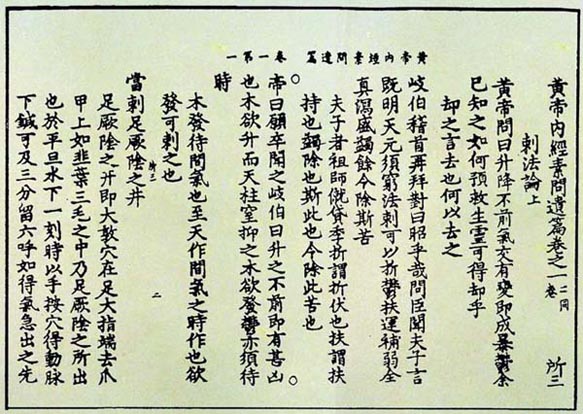 黃帝內經素問遺篇 卷一第一
黃帝內經素問遺篇卷之一 二同卷 所三
刺法論上
黃帝問曰升降不前氣交有變即成暴鬱余
已知之如何預救生靈可得却乎
却之言去也何以去之
岐伯稽首再拜對曰昭乎哉問臣聞夫子言
既明天元須窮法刺可以折鬱扶運補弱全
真瀉盛蠲餘令除斯苦
夫子者祖師僦貸季折謂折伏也扶謂扶
持也蠲除也斯此也令除此苦也
帝曰願卒聞之岐伯曰升之不前即有甚凶
也木欲升而天柱窒抑之木欲發鬱亦須待
時
木發待間氣也至天作間氣之時作也欲
發可刺之也
當刺足厥陰之井
足厥陰之井即大敦穴在足大指端去爪
甲上如韭葉三毛之中乃足厥陰之所出
也於平旦水下一刻時以手按穴得動脉
下鍼可及三分留六呼如得氣急出之先
二